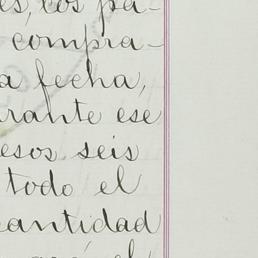 es, los pa-
compra-
a fecha,
rante ese
esos seis
todo el
cantidad
el